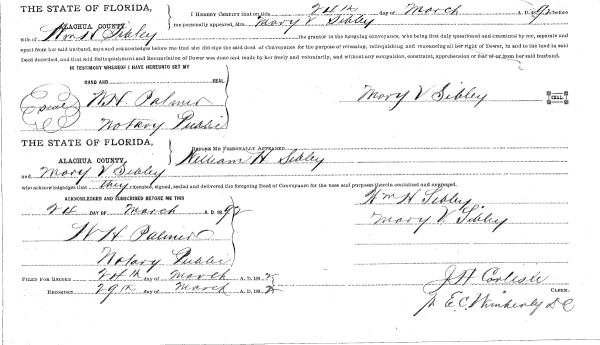 THE STATE OF FLORIDA,
ALACHUA COUNTY.
I HEREBY CERTIFY that on this 24th day of March A. D. 1892 before
me personally appeared, Mrs. Mary V Sibley
Wife of Wm H Sibley the grantor in the foregoing conveyance, who being first duly questioned and examined by me, separate and
apart from her said husband, says and acknowledges before me that she did sign the said deed of Conveyance for the purpose of releasing, relinquishing and renouncing all her right of Dower, in and to the land in said
Deed described, and that said Relinquishment and Renunciation of Dower was done and made by her freely and voluntarily, and without any compulsion, constraint, apprehension or fear of or from her said husband.
IN TESTIMONY WHEREOF I HAVE HEREUNTO SET MY
HAND AND SEAL
Seal W. H. Palmer
Mary V Sibley SEAL.
Notary Public
THE STATE OF FLORIDA,
ALACHUA COUNTY.
BEFORE ME PERSONALLY APPEARED
William H Sibley
and Mary V Sibley
who acknowledges that they executed, signed, sealed and delivered the foregoing Deed of Conveyance for the uses and purposes therein contained and expressed.
ACKNOWLEDGED AND SUBSCRIBED BEFORE ME THIS
24 DAY OF March A. D. 1892
Wm H Sibley
Mary V. Sibley
W H Palmer
Notary Public
FILED FOR RECORD 24th day of March A. D. 1892
RECORDED 29th day of March A. D. 1892
J H Carlisle
CLERK.
E. C. Wimberly D C